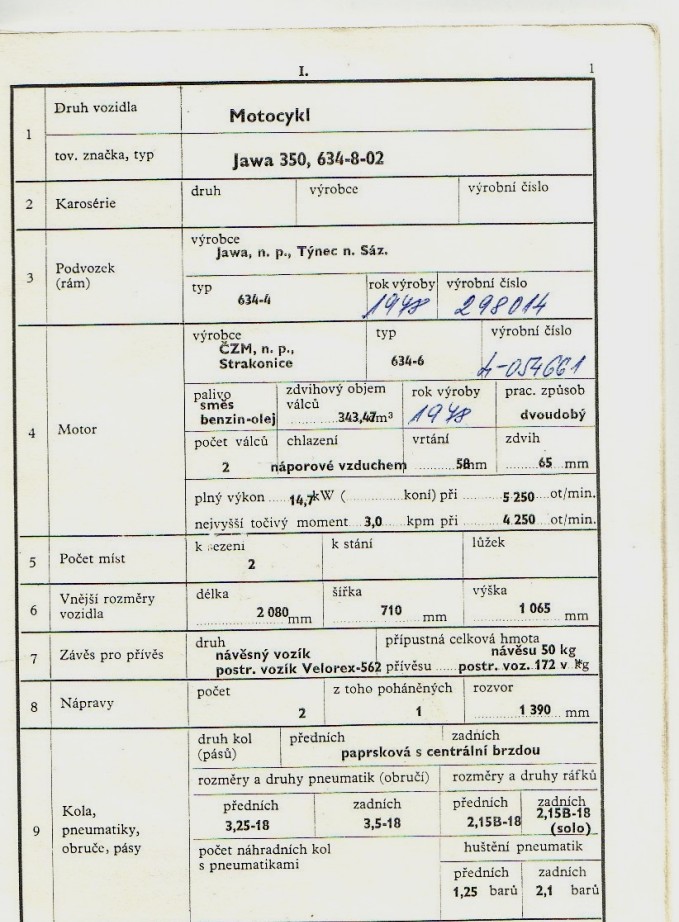 I. 1
1 Druh vozidla Motocykl
tov. značka, typ Jawa 350, 634-8-02
2 Karosérie druh výrobce výrobní číslo
výrobce
3 Podvozek (rám) Jawa, n. p., Týnec n. Sáz.
typ rok výroby výrobní číslo
634-4 1978 298014
výrobce typ výrobní číslo
ČZM, n. p.,
Strakonice 634-6 4-054661
palivo zdvihový objem válců rok výroby prac. způsob
směs
benzin-olej 343,47m³ 1978 dvoudobý
4 Motor
počet válců chlazení vrtání zdvih
2 náporové vzduchem 58mm 65 mm
plný výkon 14,7kW (..........koní) při 5 250 ot/min.
nejvyšší točivý moment 3,0 kpm při 4 250 ot/min.
5 Počet míst k sezení k stání lůžek
2
6 Vnější rozměry vozidla délka šířka výška
2 080 mm 710 mm 1 065 mm
7 Závěs pro přívěs druh přípustná celková hmota
návěsný vozík návěsu 50 kg
postr. vozík Velorex-562 přívěsu postr. voz. 172 v kg
8 Nápravy počet z toho poháněných rozvor
2 1 1 390 mm
druh kol (pásů) předních zadních
paprsková s centrální brzdou
rozměry a druhy pneumatik (obručí) rozměry a druhy ráfků
9 Kola, pneumatiky, obruče, pásy
předních zadních předních zadních
3,25-18 3,5-18 2,15B-18 2,15B-18
(solo)
počet náhradních kol s pneumatikami huštění pneumatik
předních zadních
1,25 barů 2,1 barů